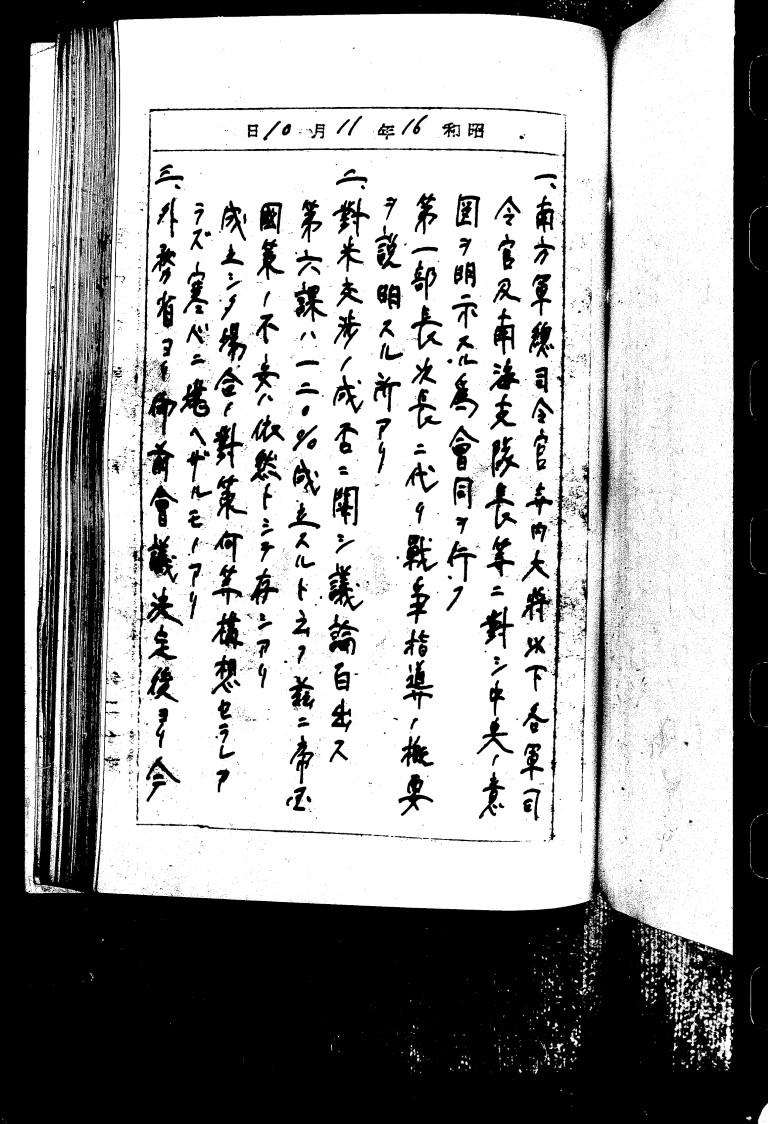 昭和16年11月10日
一、南方軍總司令官寺内大將以下各軍司
令官及南海支隊長等ニ對シ中央ノ意
圖ヲ明示スル爲會同ヲ行フ
第一部長次長ニ代リ戰爭指導ノ概要
ヲ説明スル所アリ
二、對米交渉ノ成否ニ關シ議論百出ス
第六課ハ一二〇%成立スルト云フ茲ニ帝国
國策ノ不安ハ依然トシテ存シアリ
成立シタ場合ノ對策何等構想セラレア
ラズ寒心ニ堪ヘザルモノアリ
三、外務省ヨリ御前會議決定後ヨリ今